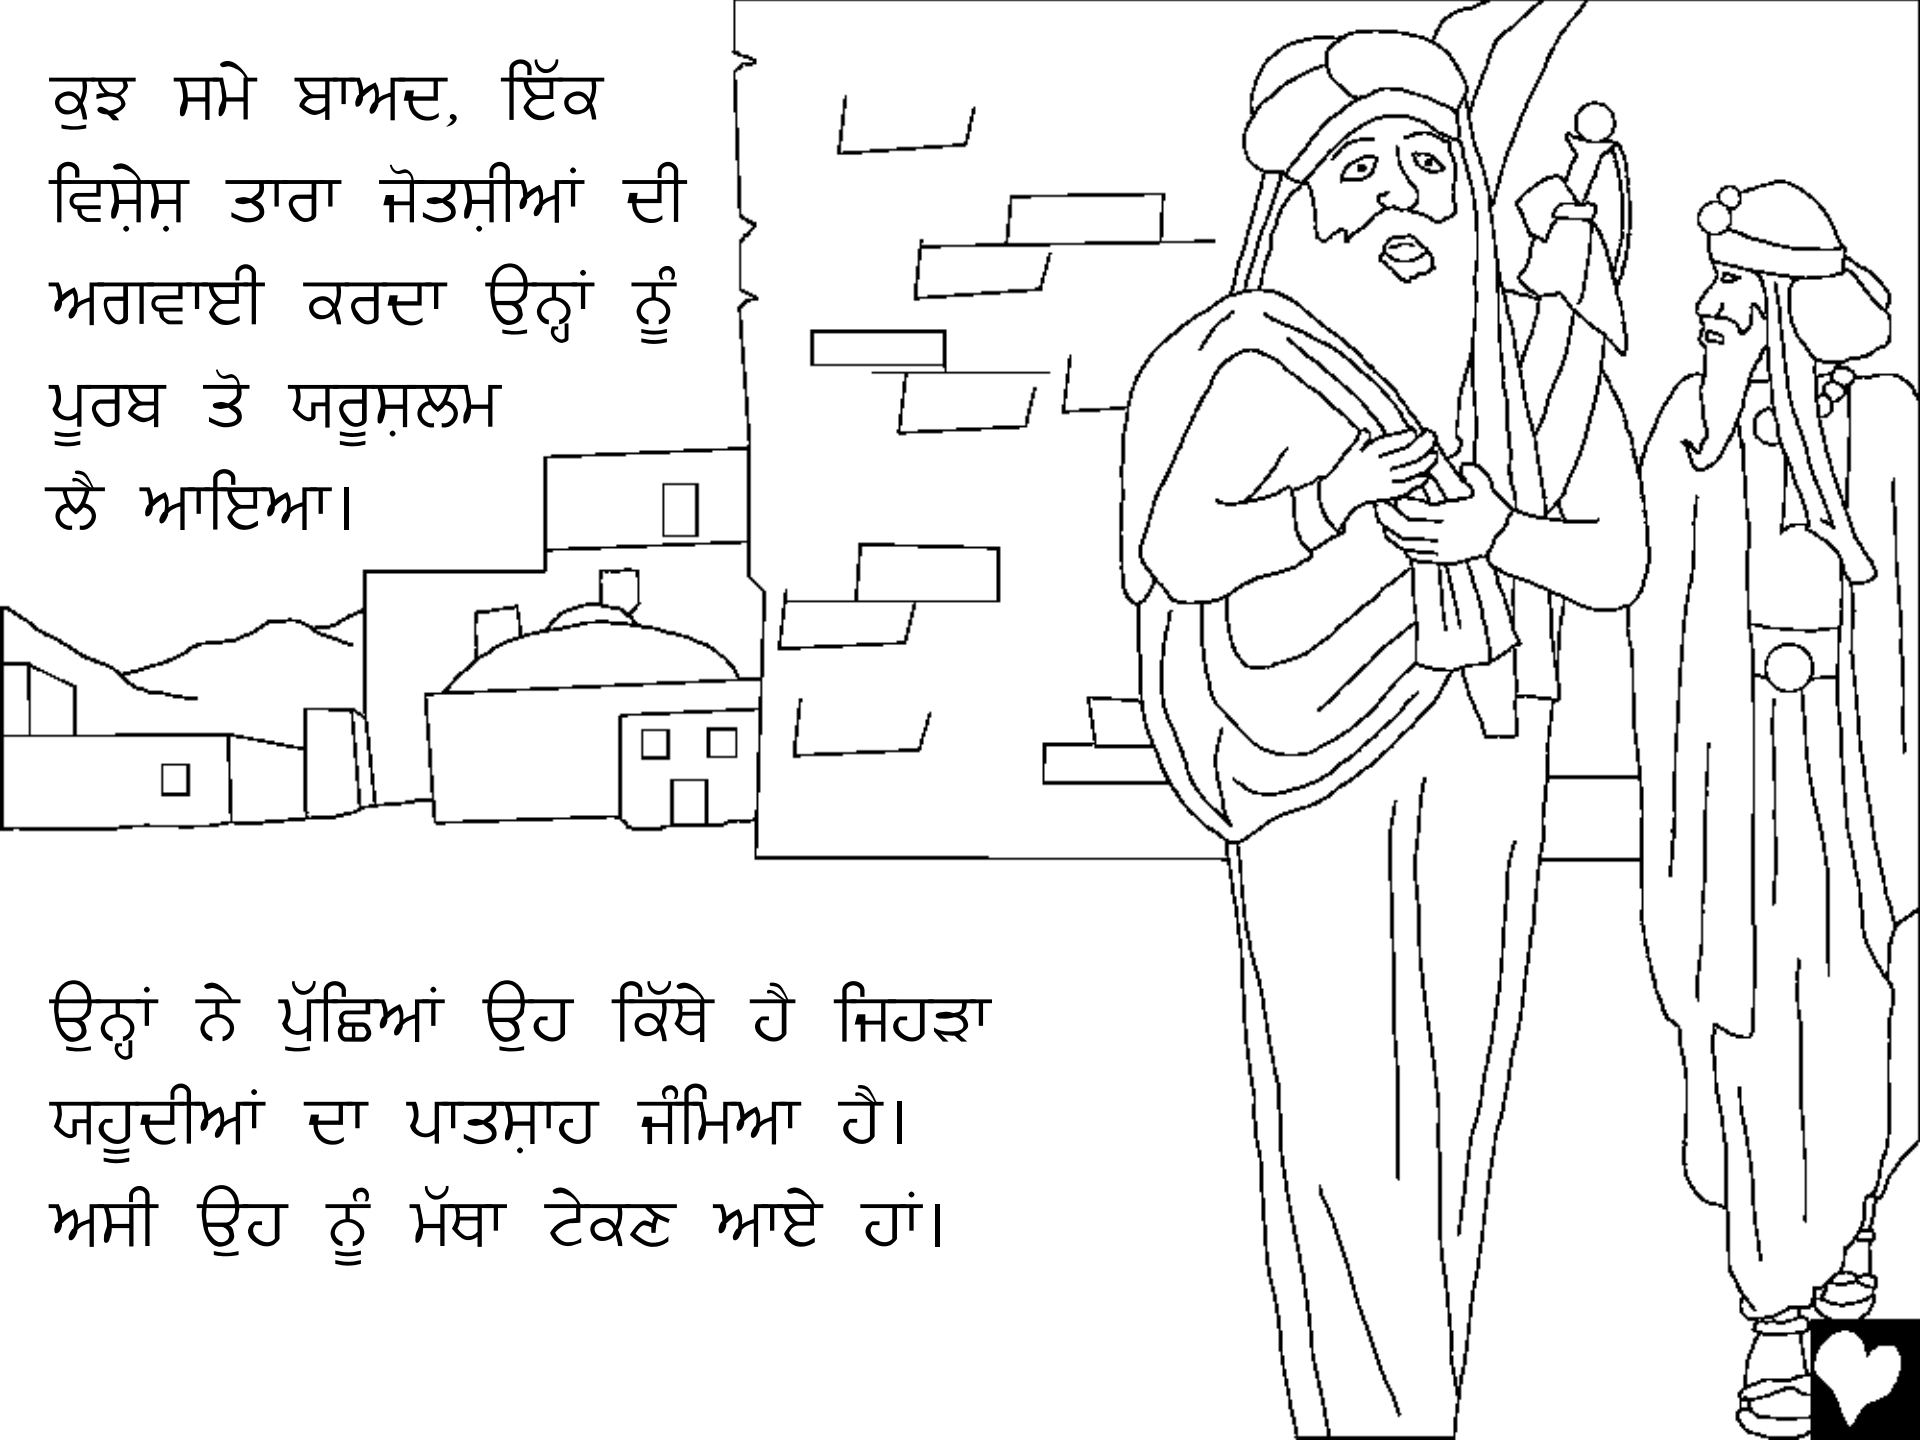 ਕੁਝ ਸਮੇ ਬਾਅਦ, ਇੱਕ
ਵਿਸ਼ੇਸ਼ ਤਾਰਾ ਜੋਤਸ਼ੀਆਂ ਦੀ
ਅਗਵਾਈ ਕਰਦਾ ਉਨ੍ਹਾਂ ਨੂੰ
ਪੂਰਬ ਤੋ ਯਰੂਸ਼ਲਮ
ਲੈ ਆਇਆ।
ਉਨ੍ਹਾਂ ਨੇ ਪੁੱਛਿਆਂ ਉਹ ਕਿੱਥੇ ਹੈ ਜਿਹੜਾ
ਯਹੂਦੀਆਂ ਦਾ ਪਾਤਸ਼ਾਹ ਜੰਮਿਆ ਹੈ।
ਅਸੀ ਉਹ ਨੂੰ ਮੱਥਾ ਟੇਕਣ ਆਏ ਹਾਂ।